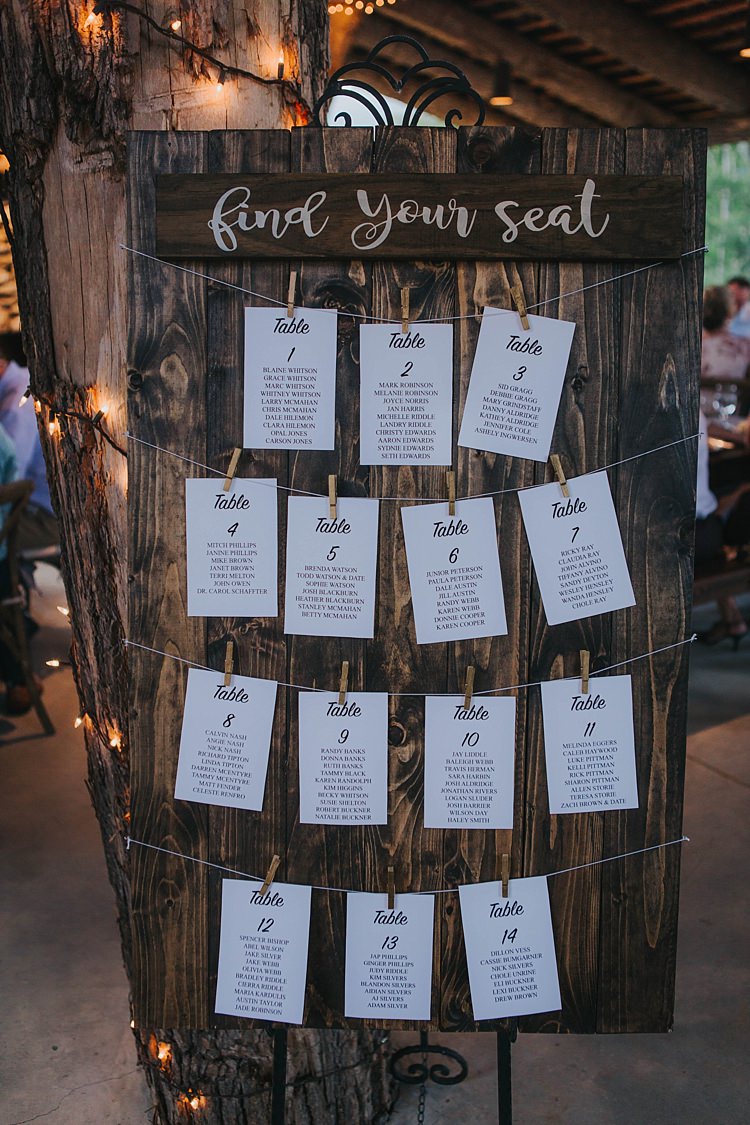 find your seat
Table
1
BLAINE WHITSON
GRACE WHITSON
MARC WHITSON
WHITNEY WHITSON
LARRY MCMAHAN
CHRIS MCMAHAN
DALE HILEMON
CLARA HILEMON
OPAL JONES
CARSON JONES
Table
2
MARK ROBINSON
MELANIE ROBINSON
JOYCE NORRIS
JAN HARRIS
MICHELLE RIDDLE
LANDRY RIDDLE
CHRISTY EDWARDS
AARON EDWARDS
SYDNIE EDWARDS
SETH EDWARDS
Table
3
SID GRAGG
DEBBIE GRAGG
MARY GRINDSTAFF
DANNY ALDRIDGE
KATHEY ALDRIDGE
JENNIFER COLE
ASHELY INGWERSEN
Table
4
MITCH PHILLIPS
JANINE PHILLIPS
MIKE BROWN
JANET BROWN
TERRI MELTON
JOHN OWEN
DR. CAROL SCHAFFTER
Table
5
BRENDA WATSON
TODD WATSON & DATE
SOPHIE WATSON
JOSH BLACKBURN
HEATHER BLACKBURN
STANLEY MCMAHAN
BETTY MCMAHAN
Table
6
JUNIOR PETERSON
PAULA PETERSON
DALE AUSTIN
JILL AUSTIN
RANDY WEBB
KAREN WEBB
DONNIE COOPER
KAREN COOPER
Table
7
RICKY RAY
CLAUDIA RAY
JOHN ALVINO
TIFFANY ALVINO
SANDY DEYTON
WESLEY HENSLEY
WANDA HENSLEY
CHOLE RAY
Table
8
CALVIN NASH
ANGIE NASH
NICK NASH
RICHARD TIPTON
LINDA TIPTON
DARREN MCENTYRE
TAMMY MCENTYRE
MATT FENDER
CELESTE RENFRO
Table
9
RANDY BANKS
DONNA BANKS
RUTH BANKS
TAMMY BLACK
KAREN RANDOLPH
KIM HIGGINS
BECKY WHITSON
SUSIE SHELTON
ROBERT BUCKNER
NATALIE BUCKNER
Table
10
JAY LIDDLE
BALEIGH WEBB
TRAVIS HERMAN
SARA HARBIN
JOSH ALDRIDGE
JONATHAN RIVERS
LOGAN SLUDER
JOSH BARRIER
WILSON DAY
HALEY SMITH
Table
11
MELINDA EGGERS
CALEB HAYWOOD
LUKE PITTMAN
KELLI PITTMAN
RICK PITTMAN
SHARON PITTMAN
ALLEN STORIE
TERESA STORIE
ZACH BROWN & DATE
Table
12
SPENCER BISHOP
ABEL WILSON
JAKE SILVER
JAKE WEBB
OLIVIA WEBB
BRADLEY RIDDLE
CIERRA RIDDLE
MARIA KARDULIS
AUSTIN TAYLOR
JADE ROBINSON
Table
13
JAP PHILLIPS
GINGER PHILLIPS
JUDY RIDDLE
KIM SILVERS
BRANDON SILVERS
AIDIAN SILVERS
AJ SILVERS
ADAM SILVER
Table
14
DILLON VESS
CASSIE BUMGARNER
NICK SILVERS
CHOLE UNRINE
ELI BUCKNER
LEXI BUCKNER
DREW BROWN